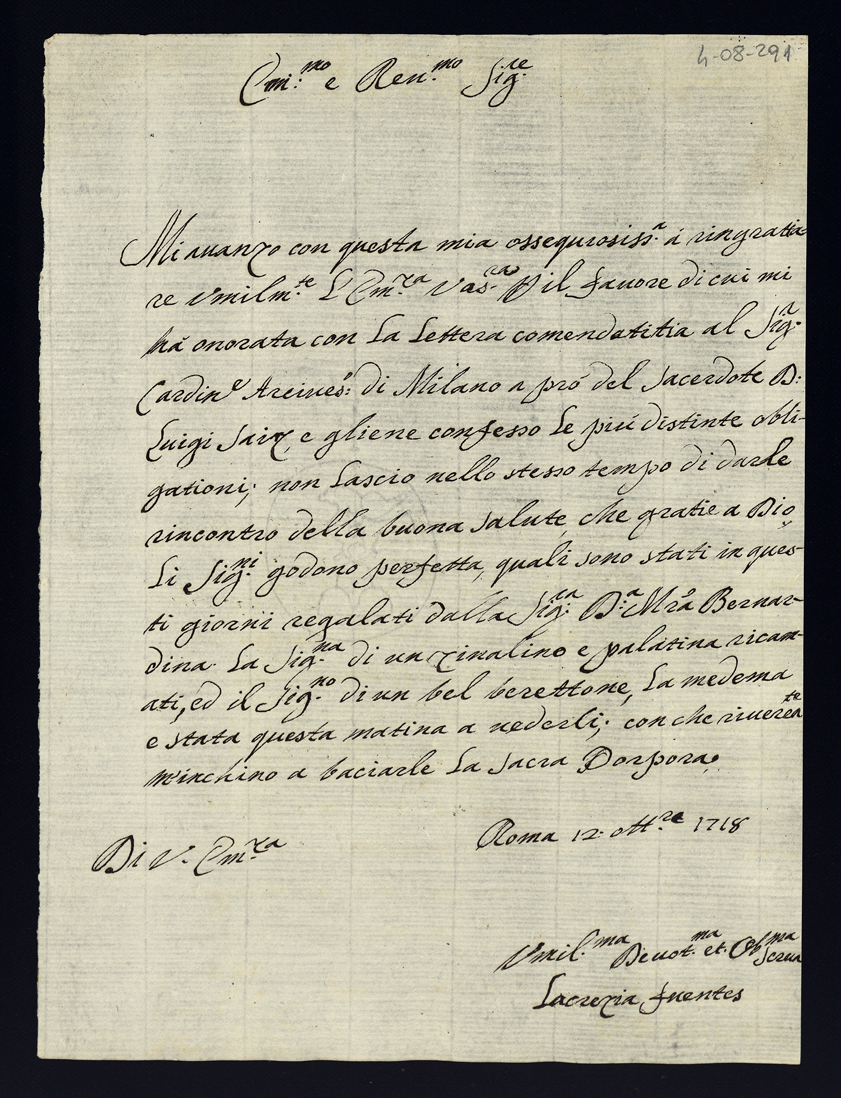 4-08-291
Em:mo e Reu:mo Sig:re
Mi auanzo con questa mia ossequiosiss:a á ringratia-
re Vmilm:te L'Em:za Vos:ra P il fauore di cui mi
há onorata con La Lettera comendatitia al Sig:r
Cardin:e Arciues: di Milano a pró del Sacerdote D:
Luigi e gliene confesso Le piú distinte obli-
gationi; non Lascio nello stesso tempo di darle
rincontro della buona salute, che gratie a Dio
Li Sig:ni godono perfetta, quali sono stati in ques-
ti giorni regalati dalla Sig:ra D:a Mra Bernar-
dina La Sig:na di un zinalino e palatina ricam-
ati, ed il Sig:no di un bel berettone, La medema
e stata questa matina a uederli; con che riuerente
m'inchino a baciarle La Sacra Porpora.
Roma 12 ott:re 1718
Di V. Em:za
Vmil:ma Deuot:ma et Ob:ma Serua
Lucrezia fuentes